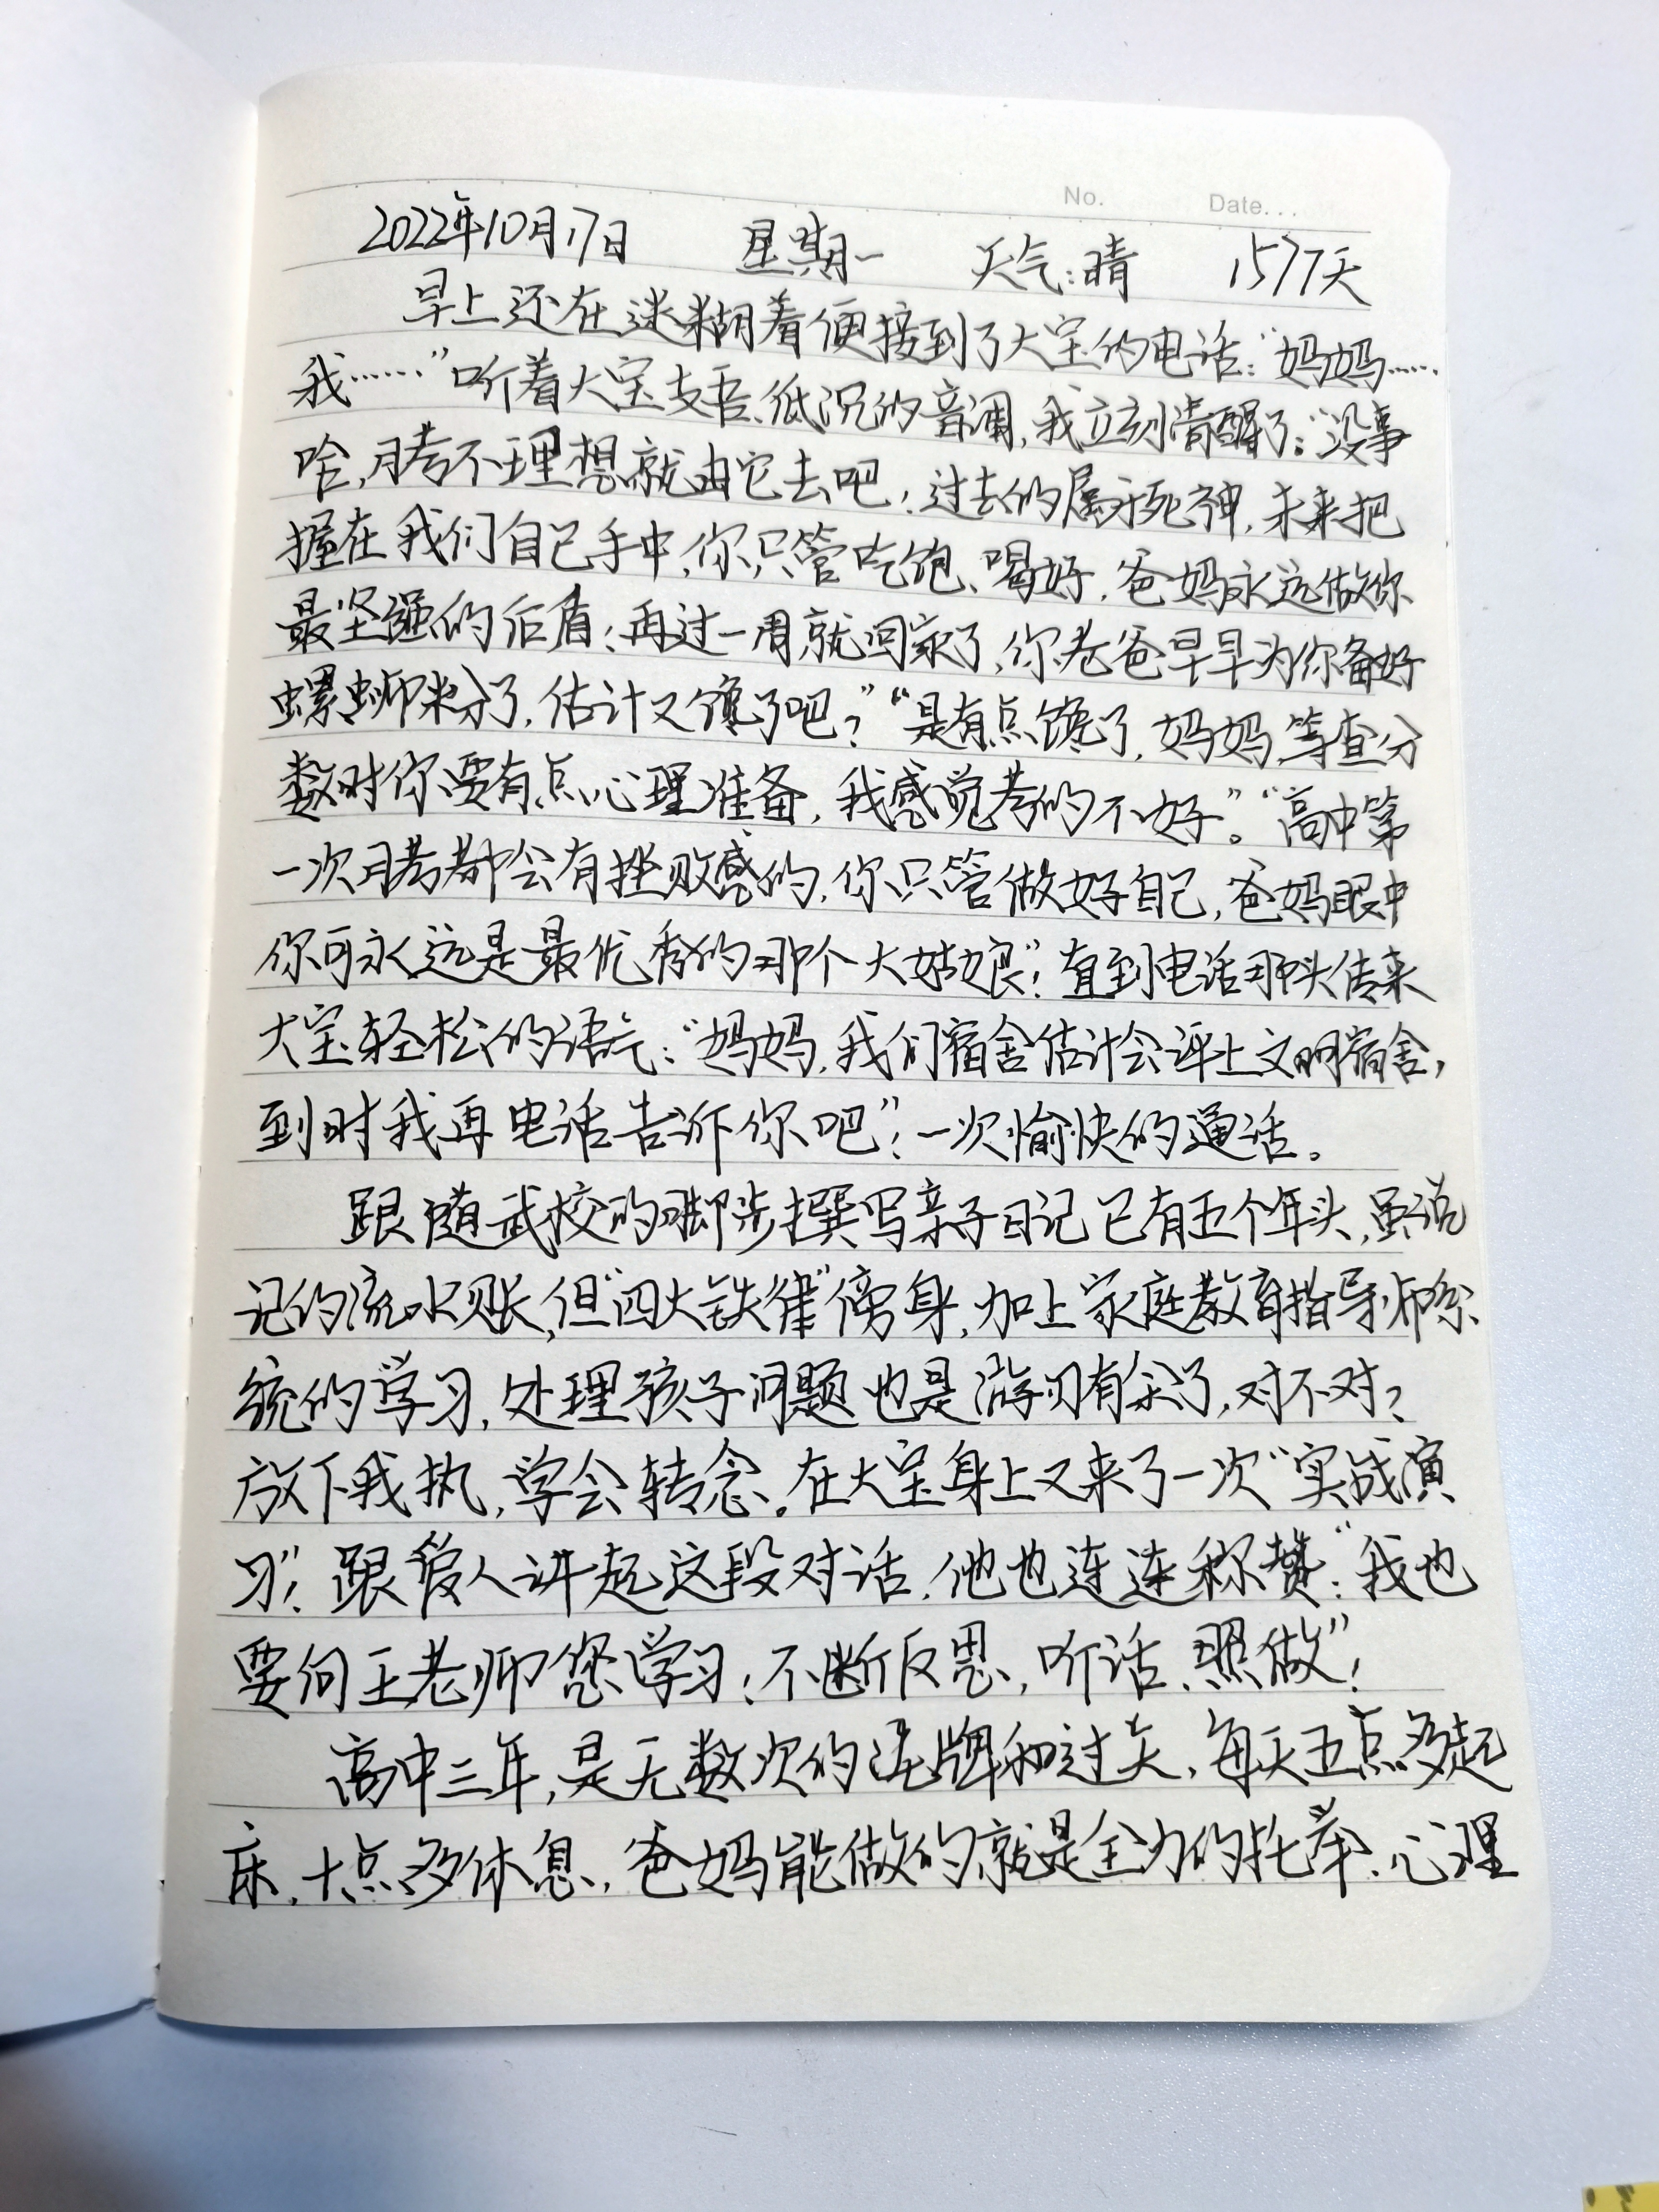 No. Date...
2022年10月17日 星期一 天气:晴 1577天
早上还在迷糊着便接到了大宝的电话:“妈妈……
我……”听着大宝支吾、低沉的音调,我立刻清醒了:“没事
啥,月考不理想就由它去吧!过去的属于死神,未来把
握在我们自己手中,你只管吃饱、喝好,爸妈永远做你
最坚强的后盾!再过一周就回家了,你老爸早早为你备好
螺蛳粉了,估计又馋了吧?”“是有点馋了,妈妈,等查分
数时你要有点心理准备,我感觉考的不好”。“高中第
一次月考都会有挫败感的,你只管做好自己,爸妈眼中
你可永远是最优秀的那个大姑娘”!直到电话那头传来
大宝轻松的语气:“妈妈,我们宿舍估计会评上文明宿舍,
到时我再电话告诉你吧”!一次愉快的通话。
跟随武校的脚步撰写亲子日记已有五个年头,虽说
记的流水账,但“四大铁律”傍身,加上家庭教育指导师系
统的学习,处理孩子问题也是游刃有余了,对不对?
放下我执,学会转念。在大宝身上又来了一次“实战演
习”!跟爱人讲起这段对话,他也连连称赞:“我也
要向王老师您学习!不断反思,听话、照做”!
高中三年,是无数次的洗牌和过关,每天五点多起
床,十点多休息,爸妈能做的就是全力的托举、心理